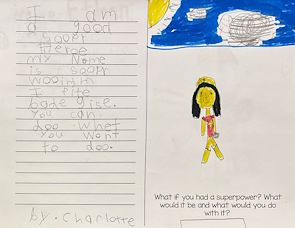 I am
a good
souer
Heroe
my Nome
is soopr
woomin
I fite
bade gise.
You can
doo whet
you wont
to doo.
by. Charlotte
What if you had a superpower? What
would it be and what would you do
with it?